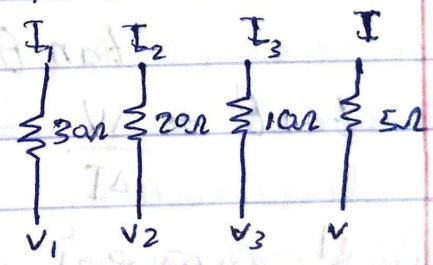 I₁ I₂ I₃ I
30Ω 20Ω 10Ω 5Ω
V₁ V₂ V₃ V